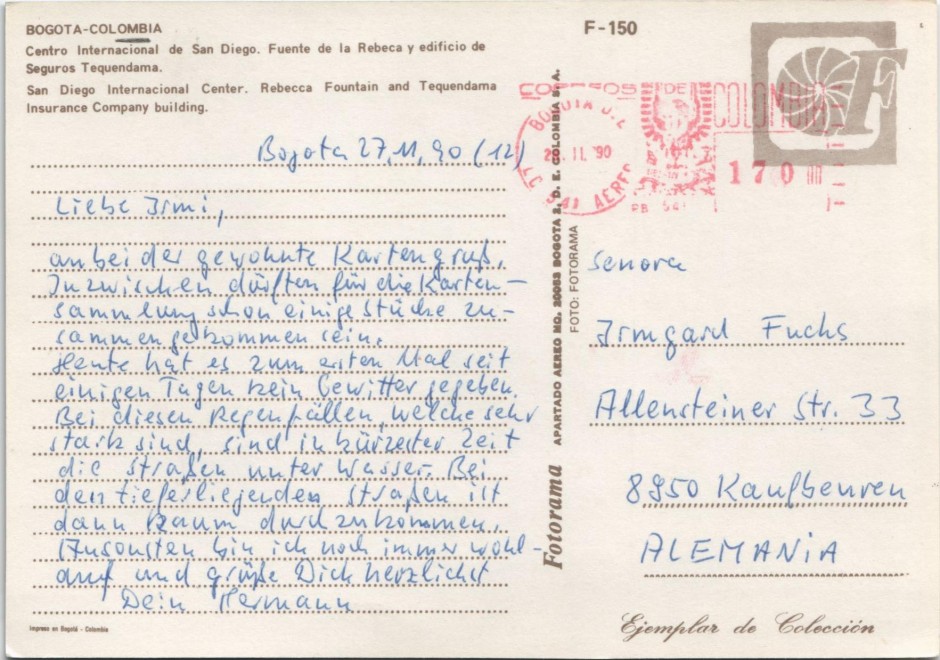 BOGOTA-COLOMBIA
Centro Internacional de San Diego. Fuente de la Rebeca y edificio de
Seguros Tequendama.
San Diego Internacional Center. Rebecca Fountain and Tequendama
Insurance Company building.
F-150
F
CORREOS DE COLOMBIA
BOGOTA
II. 90
AEREO
170
Bogota 27.11.90 (12)
Liebe Irmi,
anbei der gewohnte Kartengruß.
Inzwischen dürften für die Karten-
sammlung schon einige Stücke zu-
sammengekommen sein.
Heute hat es zum ersten Mal seit
einigen Tagen kein Gewitter gegeben.
Bei diesen Regenfällen, welche sehr
stark sind, sind in kürzester Zeit
die Straßen unter Wasser. Bei
den tieferliegenden Straßen ist
dann kaum durchzukommen.
Ansonsten bin ich noch immer wohl-
auf und grüße Dich herzlichst
Dein Hermann
Impreso en Bogotá - Colombia
Fotorama APARTADO AEREO NO. 20053 BOGOTA 2, D. E. COLOMBIA S. A.
FOTO: FOTORAMA
Senora
Irmgard Fuchs
Allensteiner Str. 33
8950 Kaufbeuren
ALEMANiA
Ejemplar de Colección